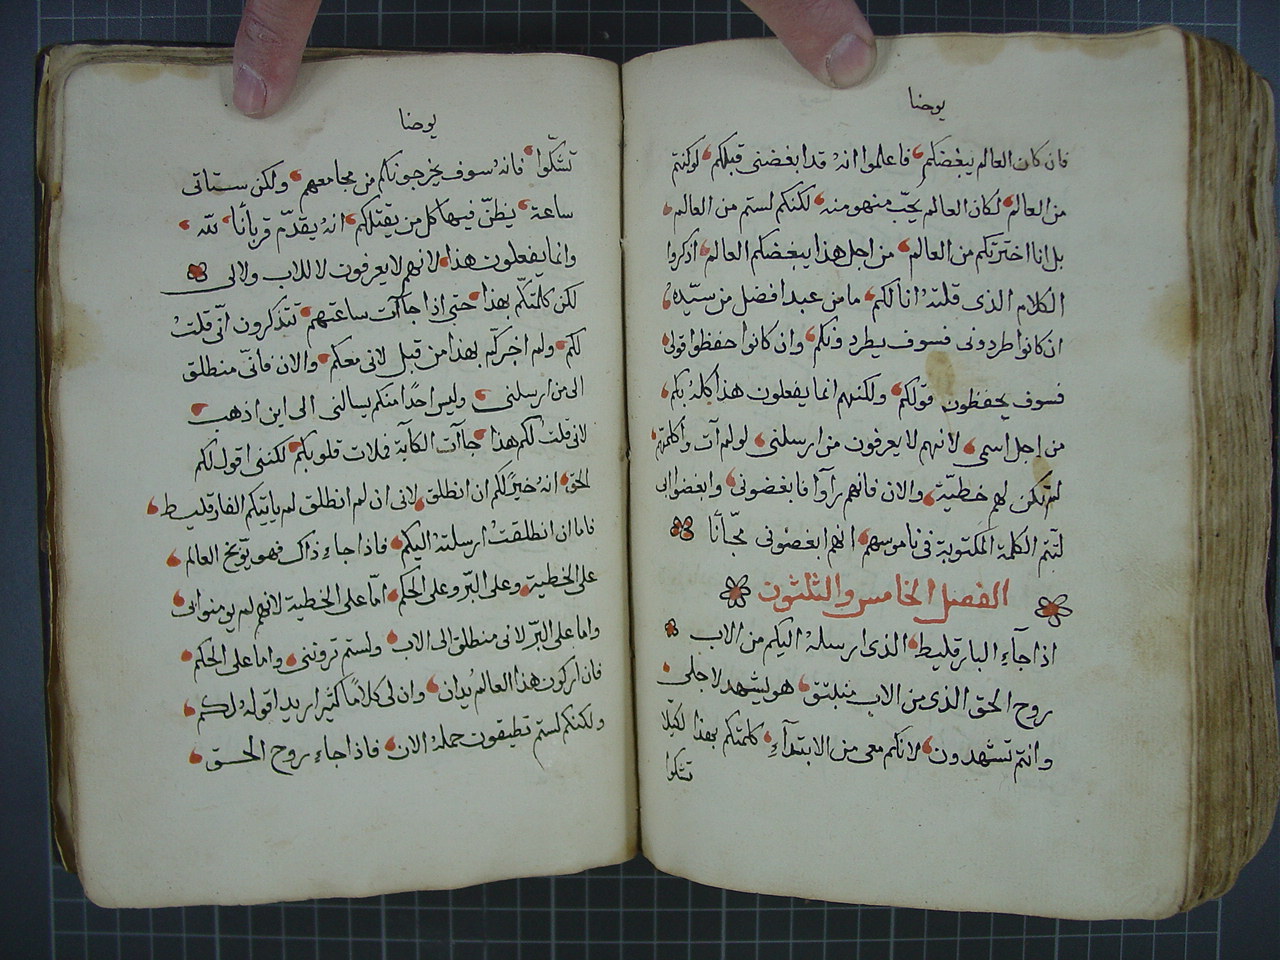 يوحنا
فان كان العالم يبغضكم فاعلموا انه قد ابغضنى قبلكم لو كنتم
من العالم لكان العالم يحبّ منهو منه لكنكم لستم من العالم
بل انا اخترتكم من العالم من اجل هذا يبغضكم العالم اذكروا
الكلام الذى قلته انا لكم ما من عبد افضل من سيّده
ان كانوا طردونى فسوف يطردونكم وان كانوا حفظوا قولى
فسوف يحفظون قولكم ولكنهم انما يفعلون هذا كله بكم
من اجل اسمى لانهم لا يعرفون من ارسلنى لو لم آت واكلمهم
لم تكن لهم خطيّة والان فانهم رآوا فابغضونى وابغضوا ابى
لتتم الكلمة المكتوبة فى ناموسهم انهم ابغضونى مجّاناً
الفصل الخامس والثلثون
اذا جاء البارقليط الذى ارسله اليكم من الاب
روح الحق الذى من الاب منبثق هو يشهد لاجلى
وانتم تشهدون لانكم معى من الابتدآء كلمتكم بهذا لكيلا
تشكوا
يوحنا
تشكّوا فانه سوف يخرجونكم من مجامعهم ولكن ستاتى
ساعة يظنّ فيها كل من يقتلكم انه يقدّم قرباناً لله
وانما يفعلون هذا لانهم لا يعرفون لا للاب ولا لى
لكن كلمتكم بهذا حتى اذا جاآت ساعتهم تتذكرون انّى قلت
لكم ولم اخبركم بهذا من قبل لانى معكم والان فانّى منطلق
الى من ارسلنى وليس احدًا منكم يسالنى الى اين اذهب
لانى قلت لكم هذا جاآت الكآبة فملات قلوبكم لكننى اقول لكم
الحق انه خيرًا لكم ان انطلق لانى ان لم انطلق لم ياتيكم الفارقليط
فاما ان انطلقت ارسلته اليكم فاذا جاء ذاك فهو يوّبخ العالم
على الخطية وعلى البرّ وعلى الحكم امّا على الخطية لانهم لم يومنوا بى
واما على البرّ لانى منطلق الى الاب ولستم تروننى واما على الحكم
فان اركون هذا العالم يدان وان لى كلامًا كثيرا اريد اقوله لكم
ولكنكم لستم تطيقون حمله الان فاذا جاء روح الحق